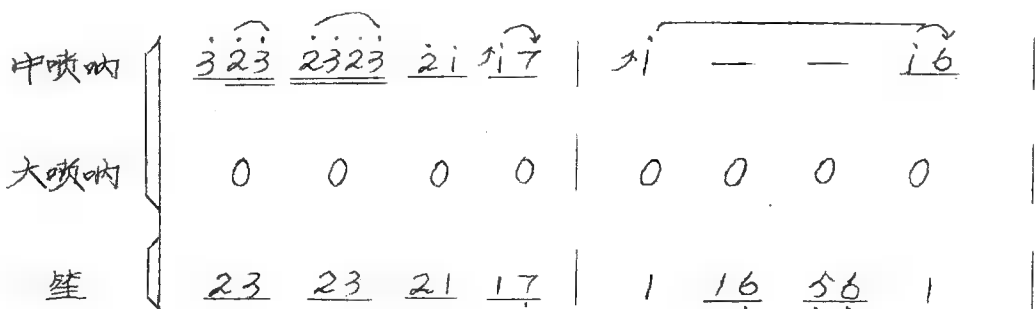 中唢呐 3 2̇3̇ 2̇3̇2̇3̇ 2̇i i7 | i — — i6 |
大唢呐 0 0 0 0 | 0 0 0 0 |
笙 23 23 21 17 | 1 16 56 1 |